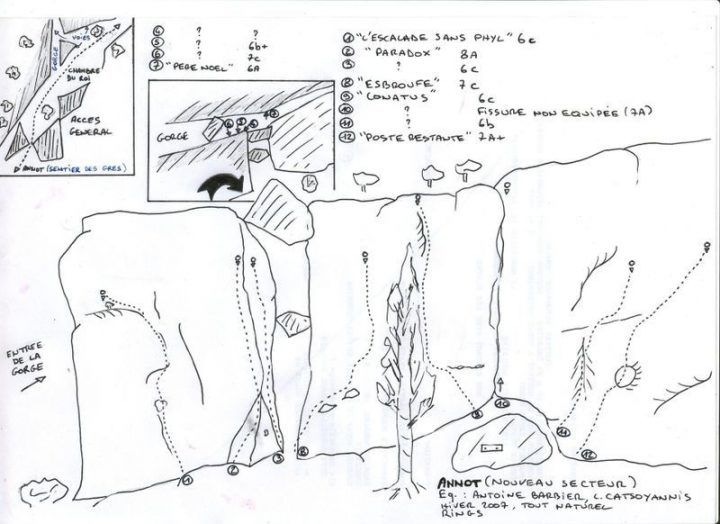 ?
VOIES
GORGE
CHAMBRE
DU ROI
ACCES
GENERAL
D'ANNOT (SENTIER DES GRES)
④ ?
⑤ ? 6b+
⑥ ? 7c
⑦ "PERE NOEL" 6A
GORGE
① "L'ESCALADE SANS PHYL" 6c
② "PARADOX" 8A
③ ? 6c
⑧ "ESBROUFE" 7c
⑨ "CONATUS" 6c
⑩ ? FISSURE NON EQUIPÉE (7A)
⑪ ? 6b
⑫ "POSTE RESTANTE" 7A+
ENTRÉE
DE LA
GORGE
①
②
③
⑧
⑨
⑩
⑪
⑫
ANNOT (NOUVEAU SECTEUR)
Eq. : ANTOINE BARBIER, L. CATSOYANNIS
HIVER 2007, TOUT NATUREL
RINGS